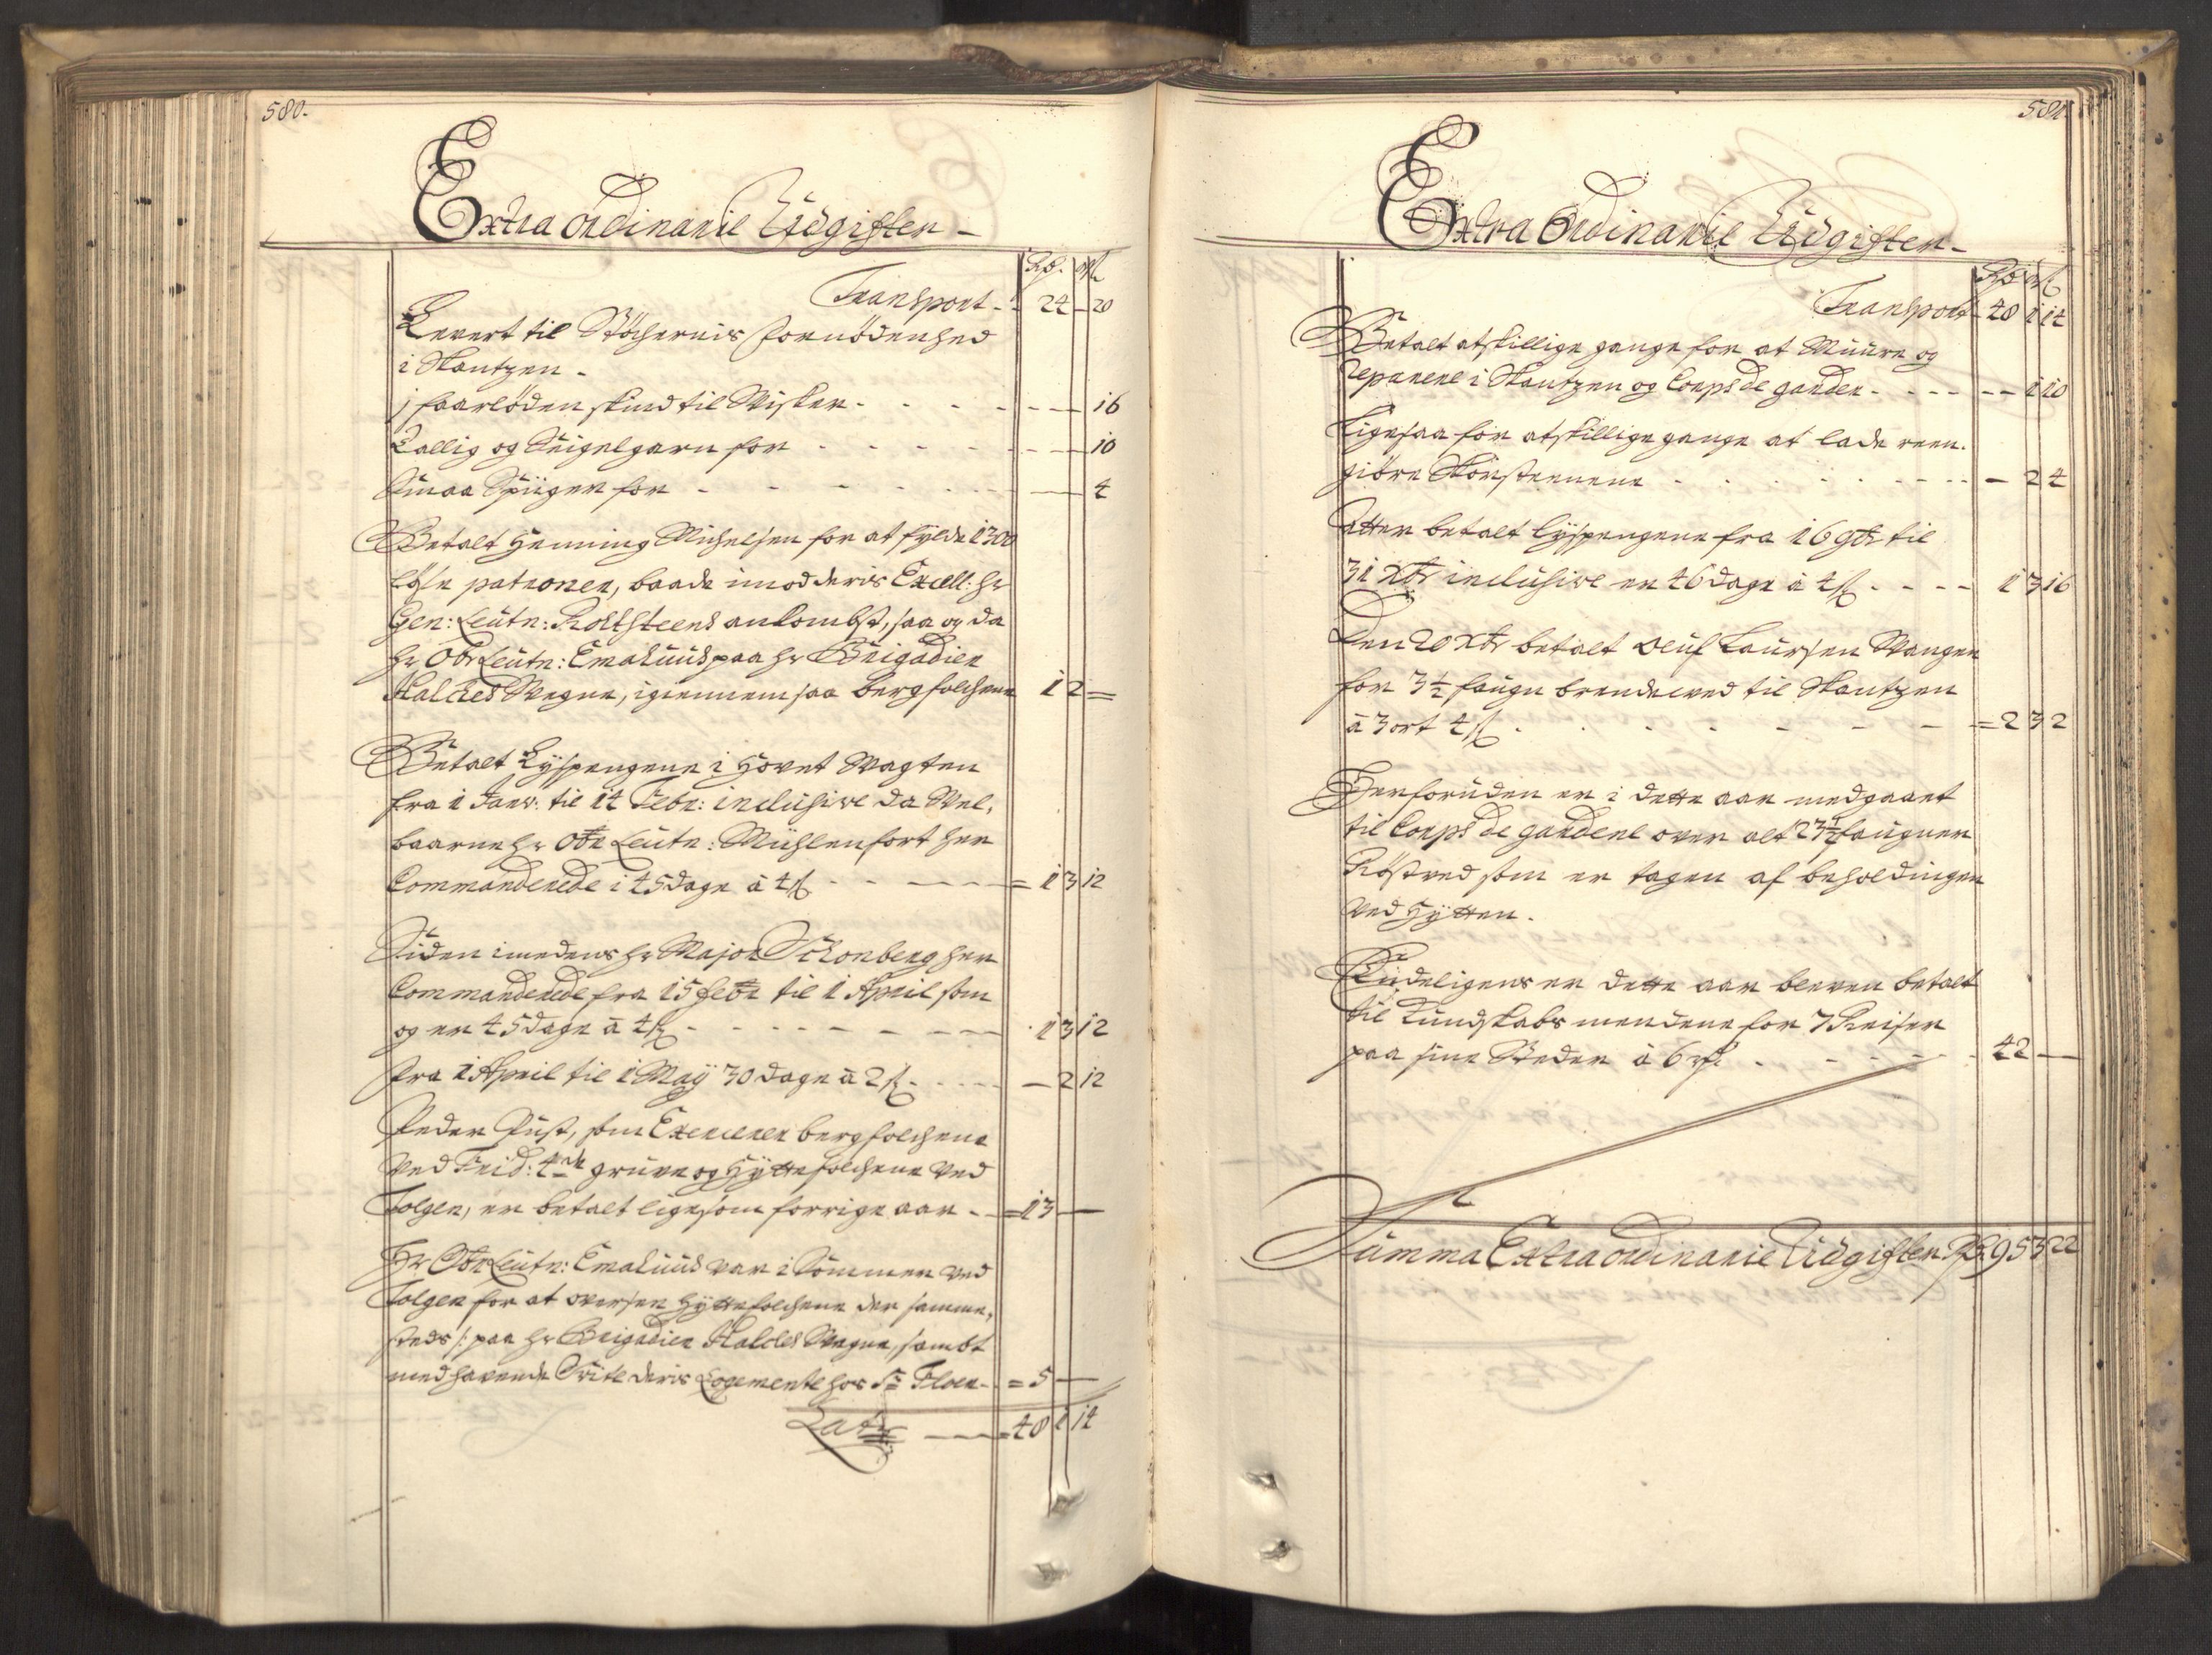 580.
Extra ordinarie Udgifter
Rdr. ort ß
Transport - 24 - 20
Levert til Stöchernis fornödenhed
i Skantzen -
1 faarloden skind til Visker - - - - 16
Tallig og Seigelgarn for - - - - 10
Smaa Spiiger for - - - - 4
Betalt Henning Michelsen for at fylde 1300
löse patroner, baade imod deris Excell: Hr
Gen: Leutn: ankombst, saa og da
Hr Obr Leutn: Emahuus paa Hr Brigadier
Halches Vegne, igiennem saa bergfolchene 1 2 =
Betalt Lyspengene i Hovet Vagten
fra 1 Janv: til 14 Febr: inclusive da Vel,
baarne Hr Obr Leutn: Mühlenfort her
Commanderede i 45 dage à 4 ß - - - = 1 3 12
Siden imedens Hr Major Schonberg her
Commanderede fra 15 Febr til 1 April som
og er 45 dage à 4 ß - - - - 1 3 12
fra 1 April til 1 Maÿ 30 dage à 2 ß - - - 2 12
Peder Just, som Exercerer bergfolchene
ved Frid: 4de gruve og Hyttefolchene ved
Tolgen, er betalt ligesom forrige aar - = 13 -
Hr Obr Leutn: Emahuus var i Sommer ved
Tolgen for at oversee Hyttefolchene der samme,
steds /: paa Hr Brigadier Halches Vegne, sambt
medhavende Svite deris Logemente hos Sr Floer - = 5 -
Latr - 48 1 14
581.
Extra Ordinarie Udgifter -
Rdr ort ß
Transport - 48 1 14
Betalt atskillige gange for at Muure og
reparere i Skantzen og Corps de garden - - - 1 10
Ligesaa for atskillige gange at lade reen-
giöre Skorsteenene - - - 2 4
Atter betalt Lyspengene fra 16 9br til
31 Xbr inclusive er 46 dage à 4 ß - - - 1 3 16
Den 20 Xbr betalt Oluf Laursen Vangen
for 3½ faugn brendeved til Skantzen
à 3 ort 4 ß - - - - = 2 3 2
Herforuden er i dette aar medgaaet
til Corps de gardene over alt 23½ faugner
Röstved som er tagen af beholdingen
ved Hytten.
Endeligens er dette aar bleven betalt
til Kundskabs mendene for 7 Reiser
paa sine Steder à 6 rdr - - - 42 -
Summa Extra ordinarie Udgifter Rdr 95 3 22